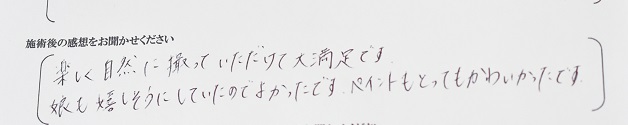 施術後の感想をお聞かせください
楽しく自然に撮っていただけて大満足です
娘も嬉しそうにしていたのでよかったです、ペイントもとってもかわいかったです。